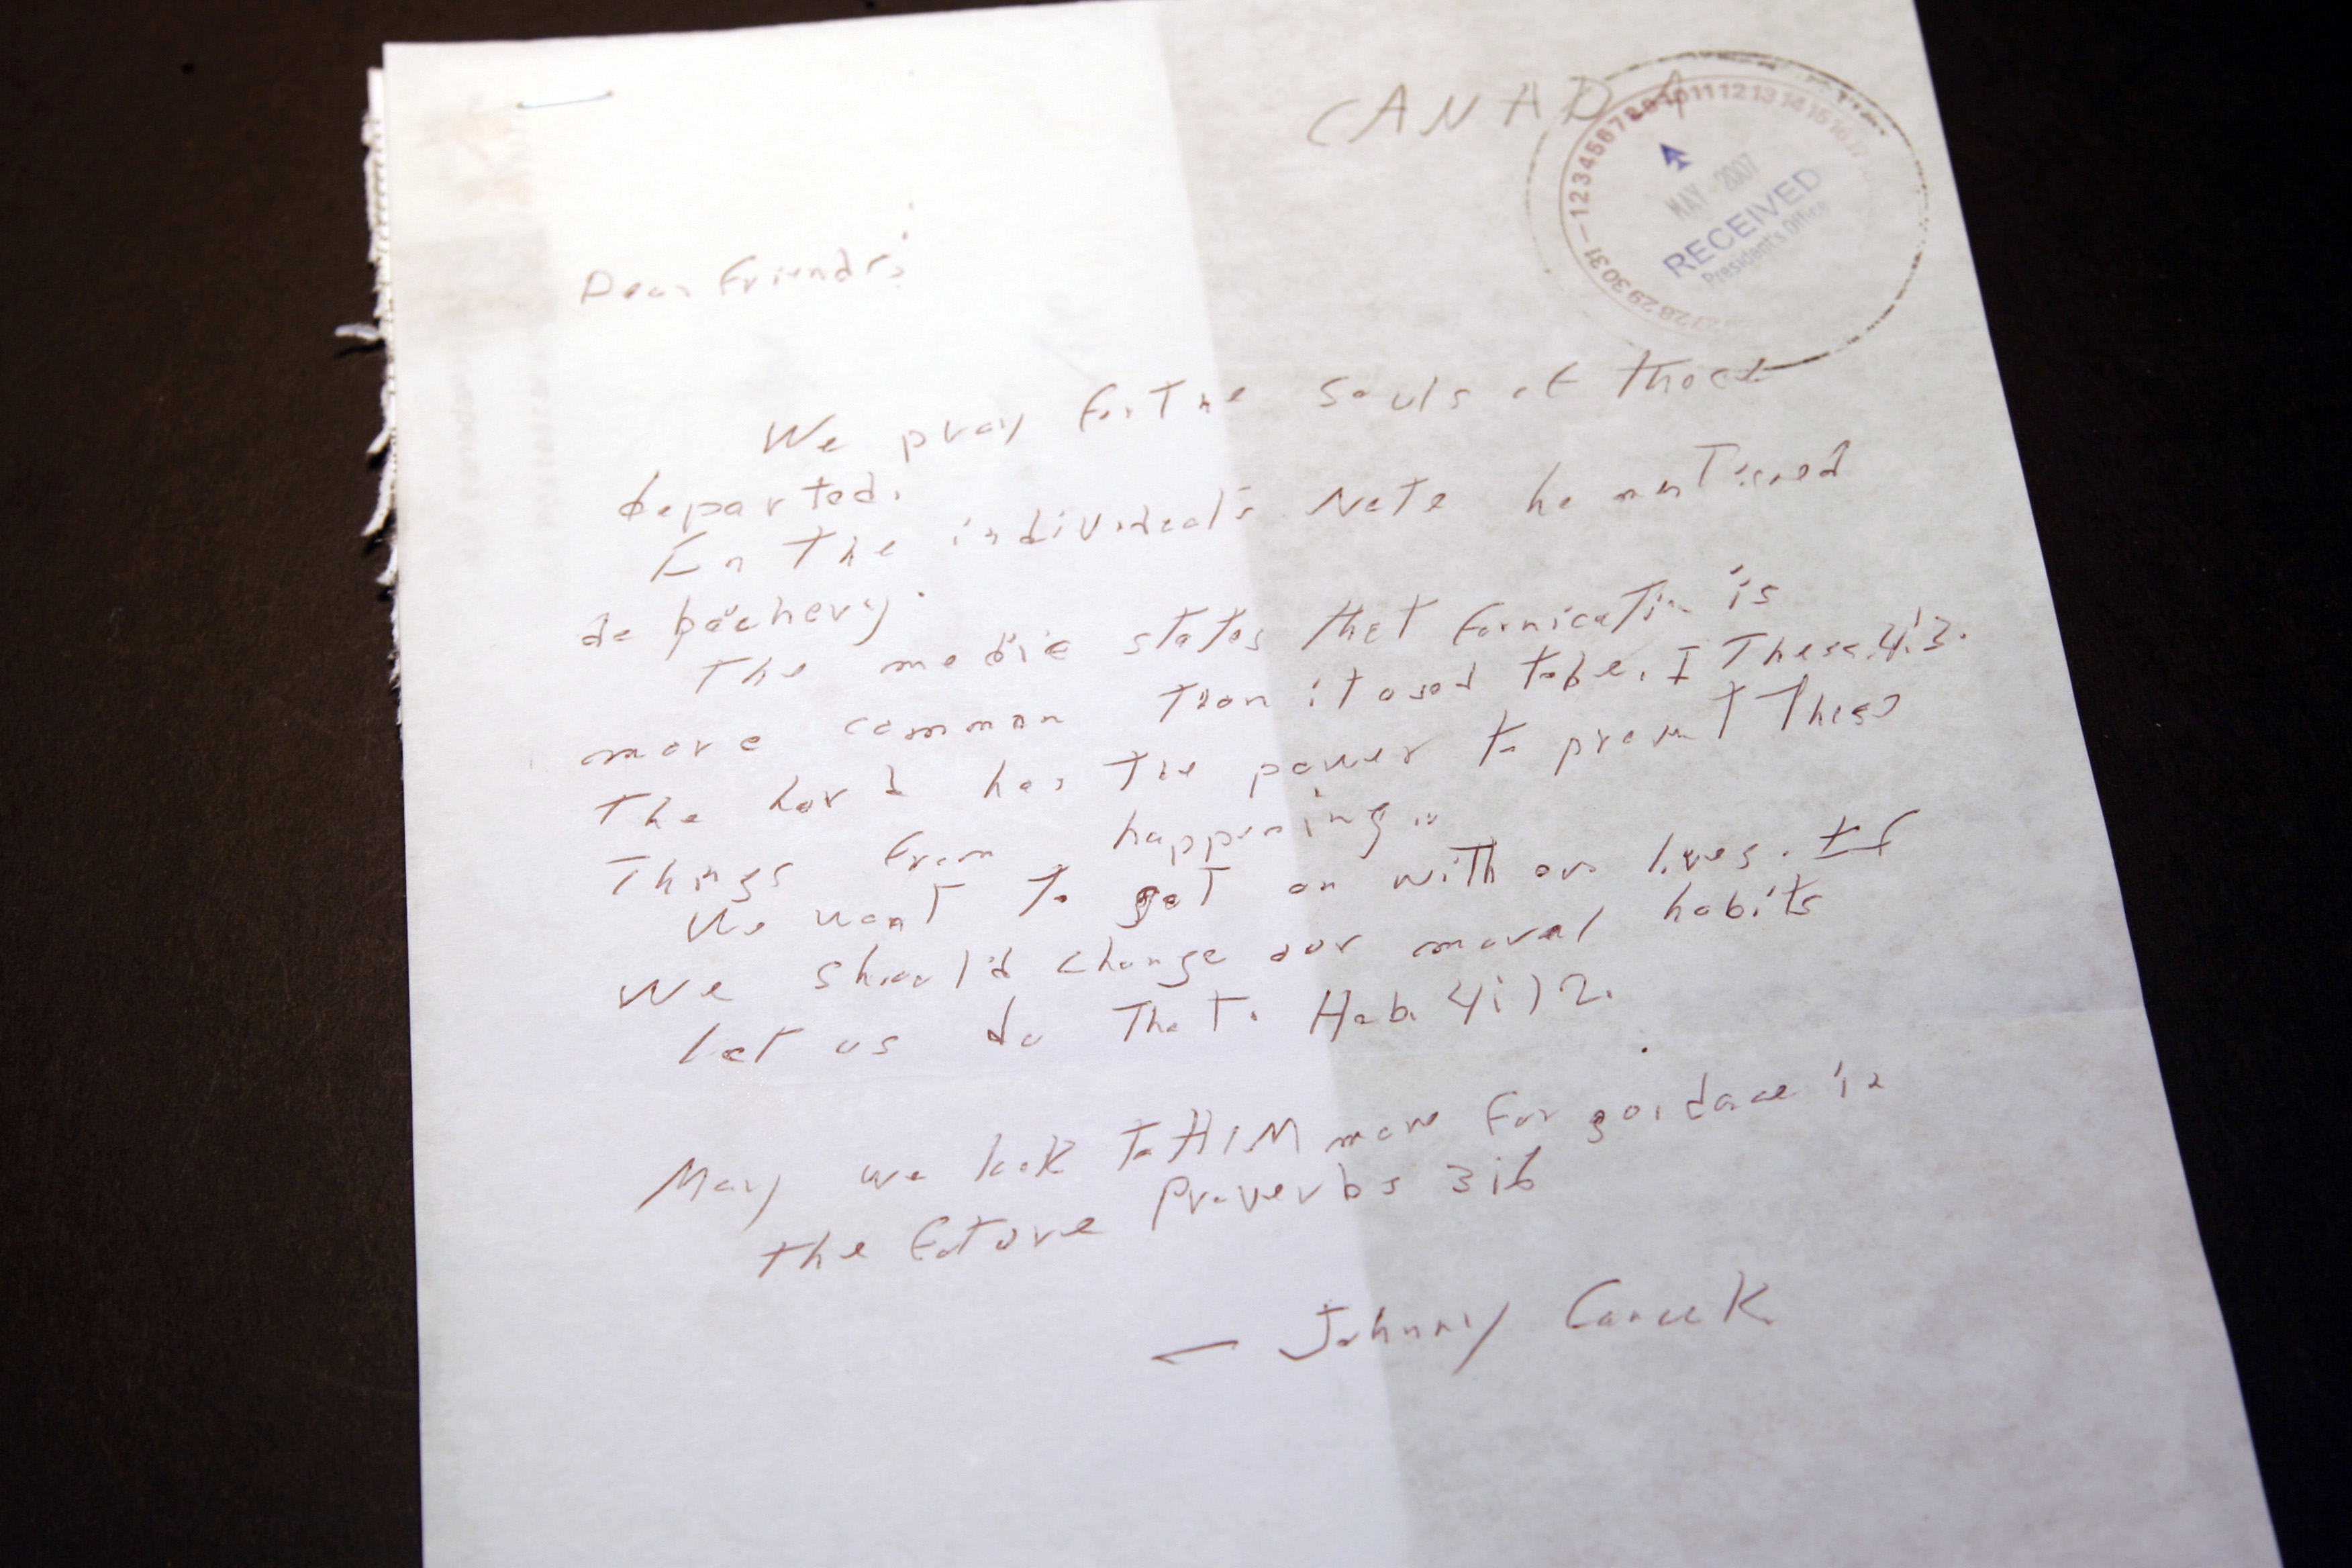 CANADA
1 2 3 4 5 6 7 8 9 10 11 12 13 14 15 16 17
27 28 29 30 31
MAY 2007
RECEIVED
President's Office
Dear Friends;
We pray for the souls of those
departed.
In the individeal's Note he mentioned
debáchery.
The media states that fornication is
more common than it used to be. I Thess. 4:3.
The Lord has the power to prevent these
things from happening..
We want to get on with our lives. If
we should change our moral habits
let us do that. Heb. 4:12.
May we look to HIM more for guidance in
the future Proverbs 3:6
— Johnny Canuck